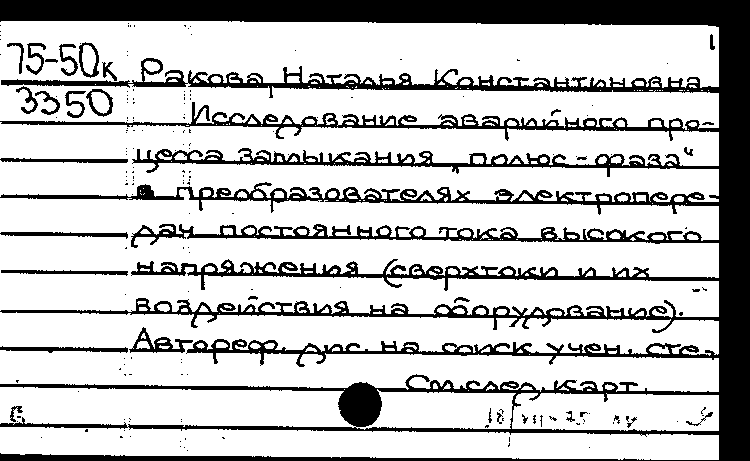 1
75-50к Ракова, Наталья Константиновна
3350 Исследование аварийного про-
цесса замыкания „полюс-фаза"
в преобразователях электропере-
дач постоянного тока высокого
напряжения (сверхтоки и их
воздействия на оборудование).
Автореф. дис. на соиск. учен. сте-
См. след. карт.
18/VII-75